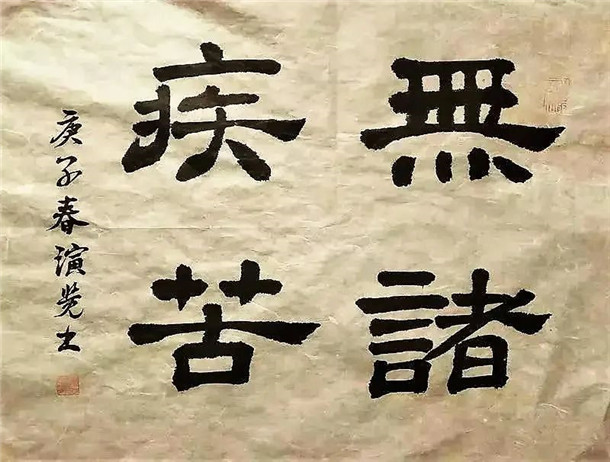 無諸
疾苦
庚子春演觉士